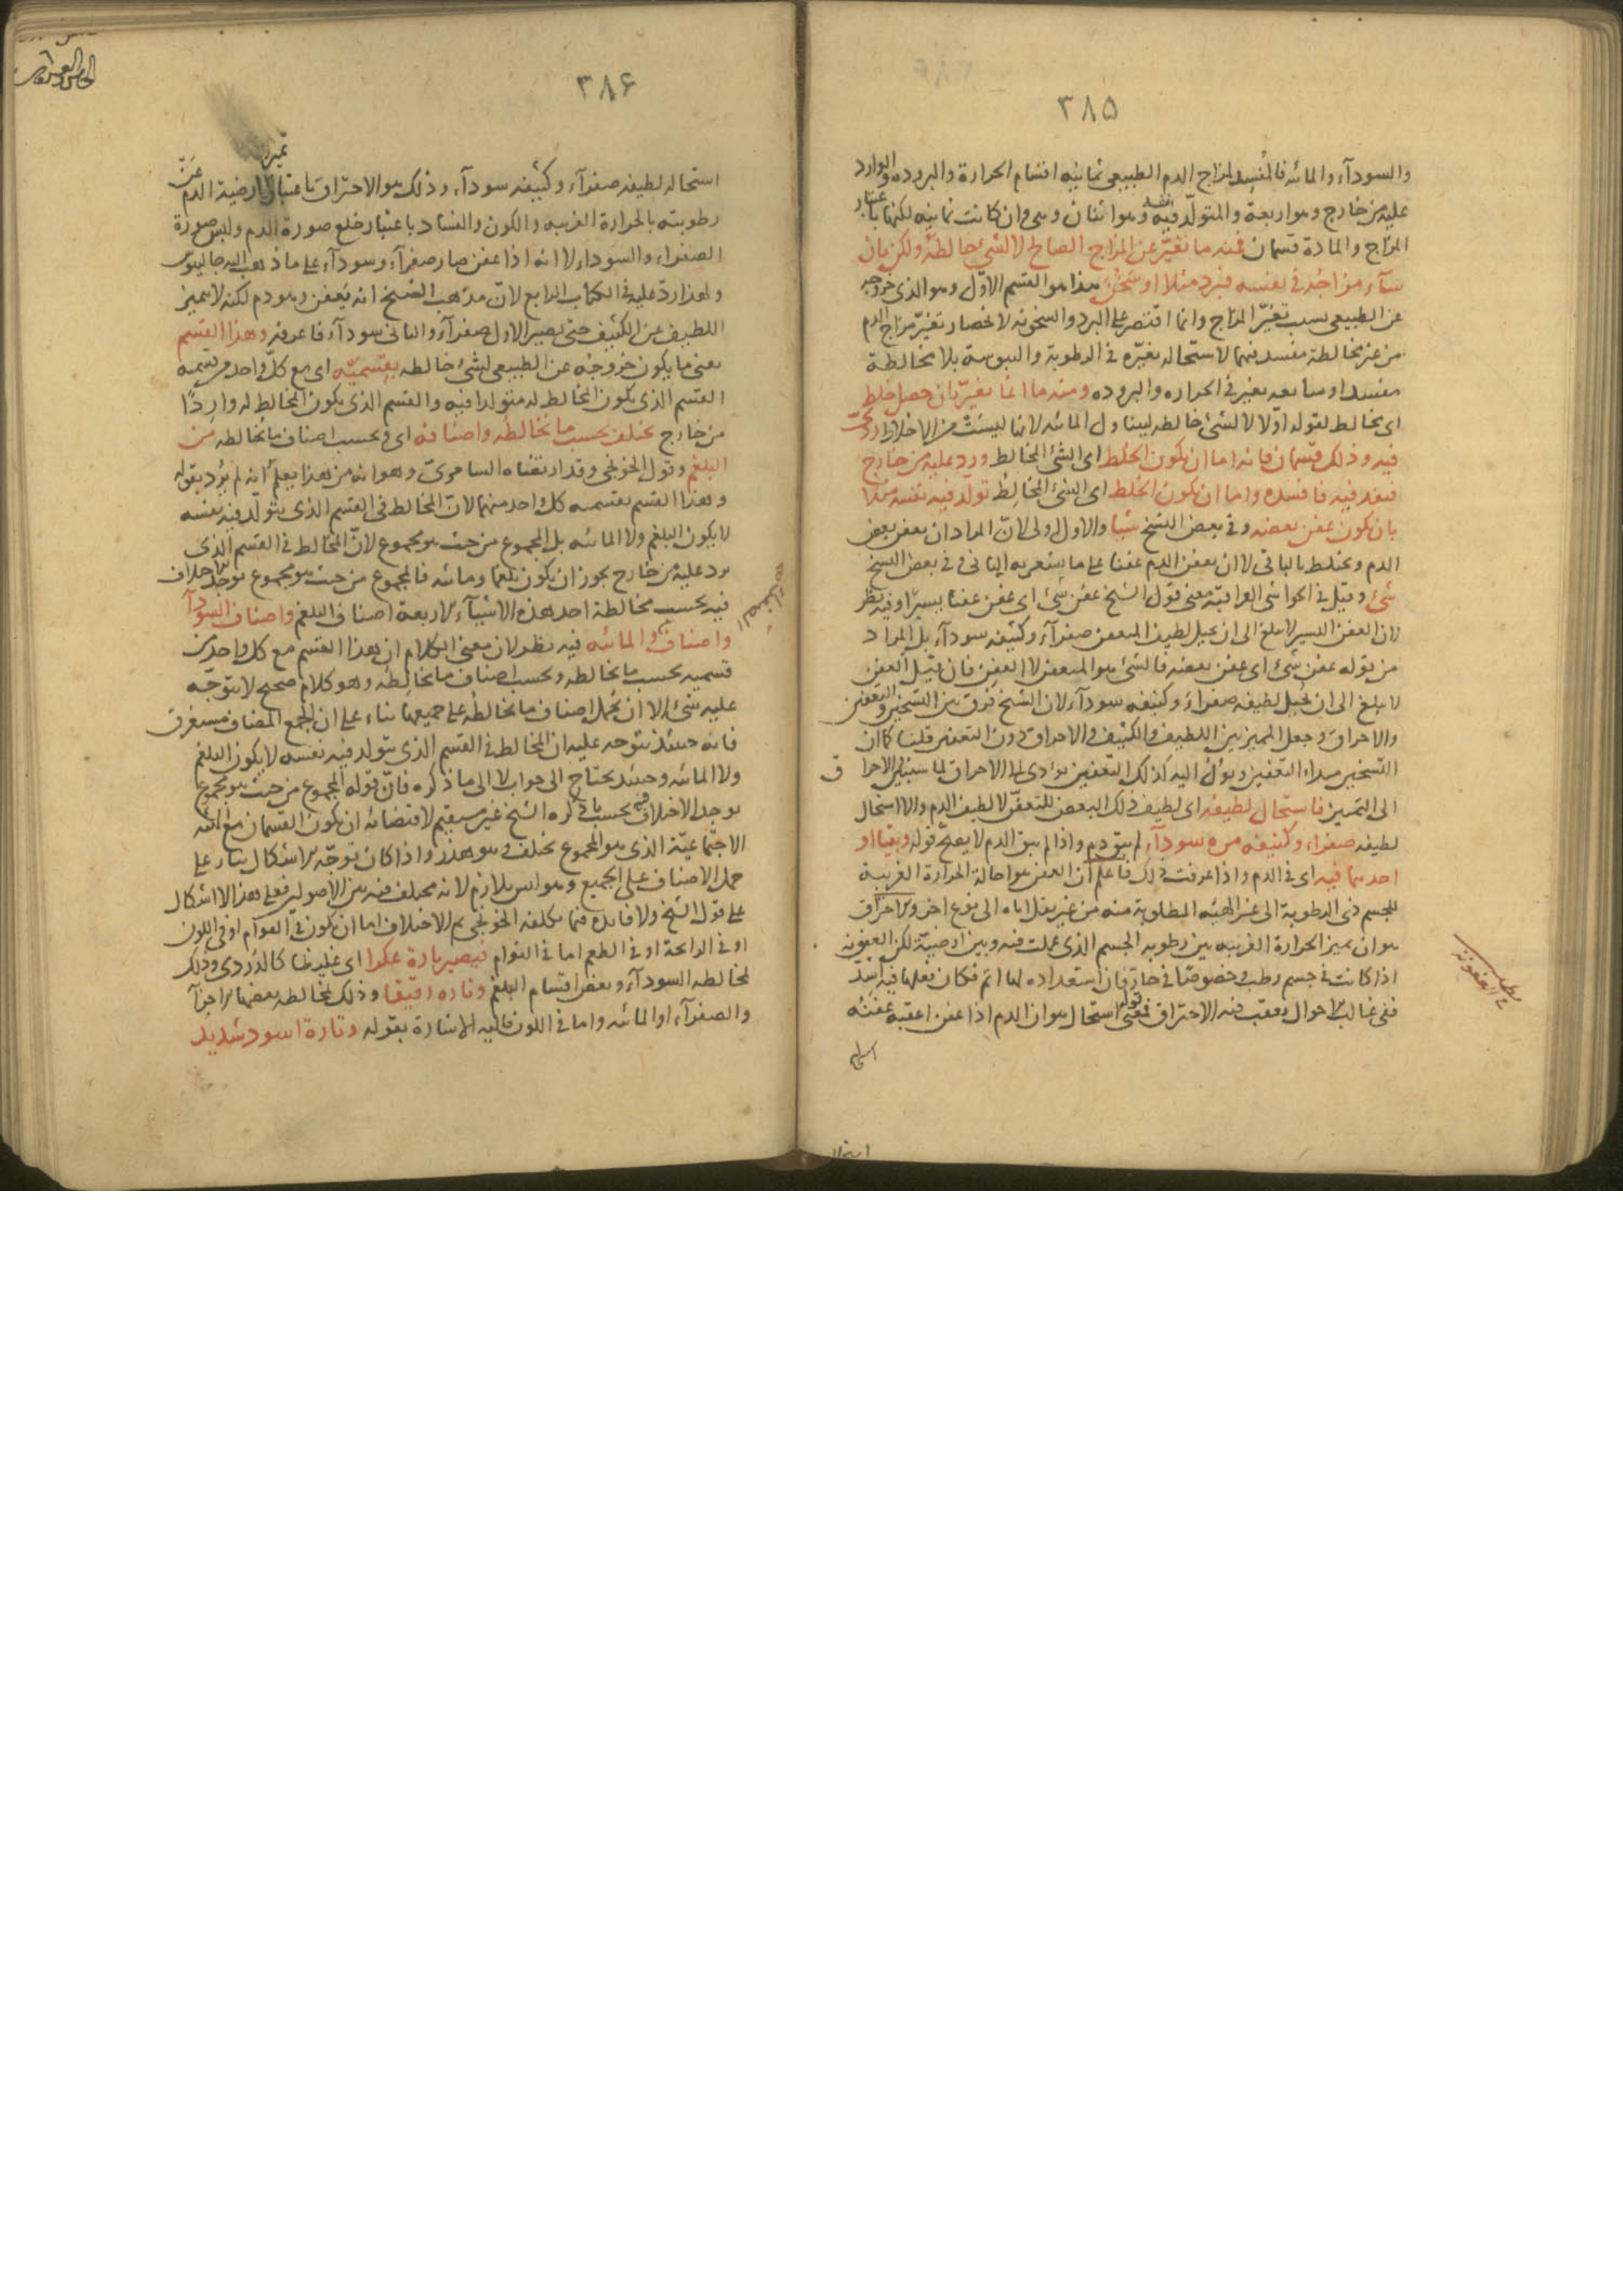 ٣٨٥
والسودآء والمائه فالمفسد لمزاج الدم الطبيعى ثمانيه اقسام الحرارة والبروده والوارد
عليه من خارج وهو اربعة والمتولد فيه وهو اثنان وهى وان كانت ثمانيه لكنها باعتبار
المزاج والمادة قسمان فمنه ما تغير عن المزاج الصالح لا لشئ خالطه ولكن بان
سآء مزاجه فى نفسه فبرد مثلا او سخن هذا هو القسم الاول وهو الذى خروجه
عن الطبيعى بسبب تغير المزاج وانما اقتصر على البرد والسخونه لانحصار تغير مزاج الدم
من غير مخالطة مفسد فيهما لاستحاله تغيره فى الرطوبة واليبوسة بلا مخالطة
مفسد او سابقه تغير فى الحراره والبروده ومنه ما انما تغير بان حصل خلط
اى مخالط لقوله اولا لا لشئ خالطه ليتناول المائه لانها ليست من الاخلاط ردى
فيه وذلك قسمان فانه اما ان يكون الخلط اى الشئ المخالط ورد عليه من خارج
فنفذ فيه فافسده واما ان يكون الخلط اى الشئ المخالط تولد فيه نفسه مثلا
بان يكون عفن بعضه وفى بعض النسخ شيا والاول اولى لان المراد ان يعفن بعض
الدم ويختلط بالباقى لا ان يعفن الدم عفنا على ما يشعر به الثانى وفى بعض النسخ
شئ وقيل فى الحواشى العراقية معنى قول الشيخ عفن شئ اى عفن عفنا يسيرا وفيه نظر
لان العفن اليسير لا يبلغ الى ان يحيل لطيف المتعفن صفرآء وكثيفه سودآء بل المراد
من قوله عفن شئ اى عفن بعضه فالشئ هو المتعفن لا العفن فان قيل العفن
لا يبلغ الى ان يحيل لطيفه صفراء وكثيفه سودآء لان الشيخ فرق بين التسخين والتعفين
والاحراق وجعل التمييز بين اللطيف والكثيف فى الاحراق دون التعفين قلنا كما ان
التسخين مبداء التعفين ويؤل اليه كذلك التعفين يؤدى الى الاحراق لما سيبين الاحراق
الى التمييز فاستحال لطيفه اى لطيف ذلك البعض المتعفن لا لطيف الدم والا استحال
لطيفه صفراء وكثيفه مره سودآء لم يبق دم واذا لم يبق الدم لا يصح قوله وبقيا او
احدهما فيه اى فى الدم واذا عرفت ذلك فاعلم ان العفن هو احالة الحرارة الغريبة
للجسم ذى الرطوبة الى غير الهيئه المطلوبة منه من غير نقل اياه الى نوع اخر والاحراق
هو ان يميز الحرارة الغريبه بين رطوبه الجسم الذى عملت فيه وبين ارضيته لكن العفونه
اذا كانت فى جسم رطب وخصوصا فى حار فان استعداده لها اتم فكان فعلها فيه اشد
ففى غالب الاحوال يعقب فيه الاحتراق فمعنى قوله استحال هو ان الدم اذا عفن اعقبه عفنه
٣٨۶
استحاله لطيفه صفرآء وكثيفه سودآء وذلك هو الاحتراق باعتبار تميز ارضية الدم عن
رطوبته بالحرارة الغريبه والكون والفساد باعتبار خلع صورة الدم ولبس صورة
الصفراء والسوداء لا انه اذا عفن صار صفرآء وسودآء على ما ذهب اليه جالينوس
ولهذا رد عليه فى الكتاب الرابع لان مذهب الشيخ انه يعفن وهو دم لكنه لا يميز
اللطيف عن الكثيف حتى يصير الاول صفرآء والثانى سودآء فاعرفه وهذا القسم
يعنى ما يكون خروجه عن الطبيعى لشئ خالطه بقسميه اى مع كل واحد من قسميه
القسم الذى يكون المخالط له متولدا فيه والقسم الذى يكون المخالط له واردا
من خارج يختلف بحسب ما يخالطه واصنافه اى وبحسب اصناف ما يخالطه من
البلغم وقول الخونجى وقد ارتضاه السامرى وهو انه من هذا يعلم انه لم يرد بقوله
وهذا القسم بقسميه كل واحد منهما لان المخالط فى القسم الذى يتولد فيه نفسه
لا يكون البلغم ولا المائه بل المجموع من حيث هو مجموع لان المخالط فى القسم الذى
يرد عليه من خارج يجوز ان يكون بلغما ومائه فالمجموع من حيث هو مجموع يوجد الاختلاف
فيه بحسب مخالطة احد هذه الاشيآء الاربعة اصناف البلغم واصناف السودآء
واصناف والمائه فيه نظر لان معنى الكلام ان هذا القسم مع كل واحد من
قسميه بحسب ما يخالطه وبحسب اصناف ما يخالطه وهو كلام صحيح لا يتوجه
عليه شئ الا ان يحمل اصناف ما يخالطه على جميعها بناء على ان الجمع المضاف مستغرق
فانه حينئذ يتوجه عليه ان المخالط فى القسم الذى يتولد فيه نفسه لا يكون البلغم
ولا المائه وحينئذ يحتاج الى جواب لا الى ما ذكره فان قوله المجموع من حيث هو مجموع
يوجد الاختلاف فيه بحسب ما ذكره الشيخ غير مستقيم لاقتضائه ان يكون القسمان مع الهيئه
الاجتماعية الذى هو المجموع يختلف وهو هذر واذا كان توجه الاشكال بناء على
حمل الاصناف على الجميع وهو ليس بلازم لانه مختلف فيه بين الاصوليين فعلى هذا لا اشكال
على قول الشيخ ولا فائده فيما تكلفه الخونجى ثم الاختلاف اما ان يكون فى القوام او فى اللون
او فى الرائحة او فى الطعم اما فى القوام فيصير تارة عكرا اى غليظا كالدردى وذلك
لمخالطه السودآء وبعض اقسام البلغم وتاره رقيقا وذلك لمخالطه بعضها الاخر
والصفرآء او المائه واما فى اللون فاليه الاشارة بقوله وتارة اسود شديد